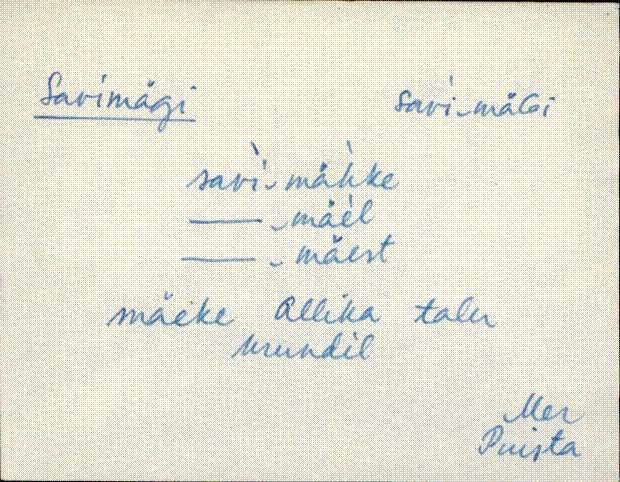 Savimägi savì-mäGi
savì-mäh̀ke
——-mäèl
——-mäest
mäeke Allika talu
krundil
Mer
Puista